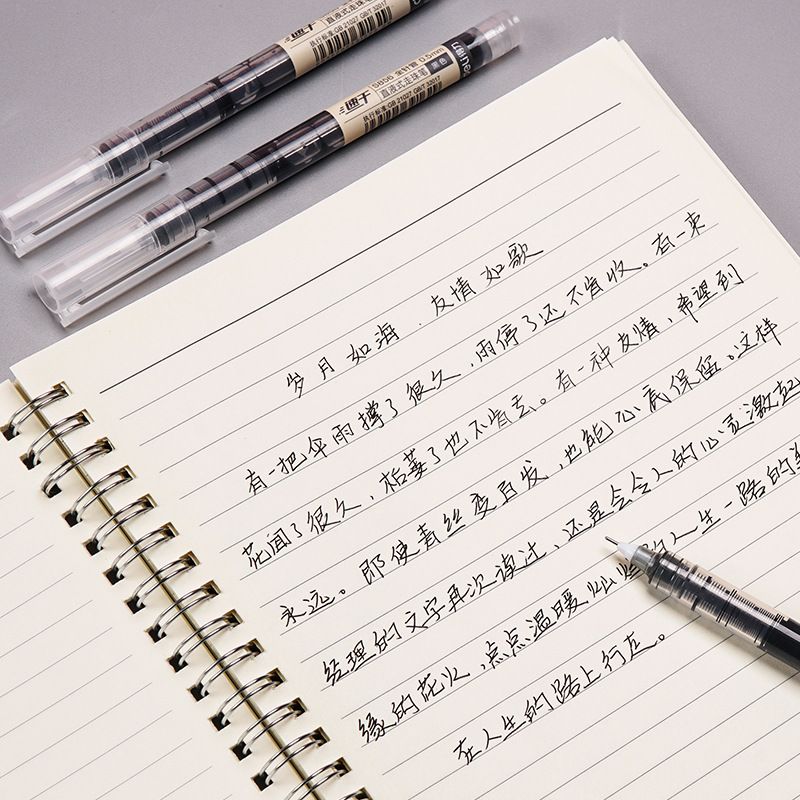 速干
直液式走珠笔
执行标准:GB 21027 GB/T 32017
速干 S856 全针管 0.5mm
直液式走珠笔 黑色
执行标准:GB 21027 GB/T 32017
deli得力
岁月如海.友情如歌
有一把伞雨撑了很久,雨停了还不肯收。有一束
花闻了很久,枯萎了也不肯丢。有一种友情,希望到
永远。即使青丝变白发,也能心底保留。这样
经理的文字再次读过,还是会令人的心灵激起
缘的花火,点点温暖 的人生一路的
在人生的路上行左。